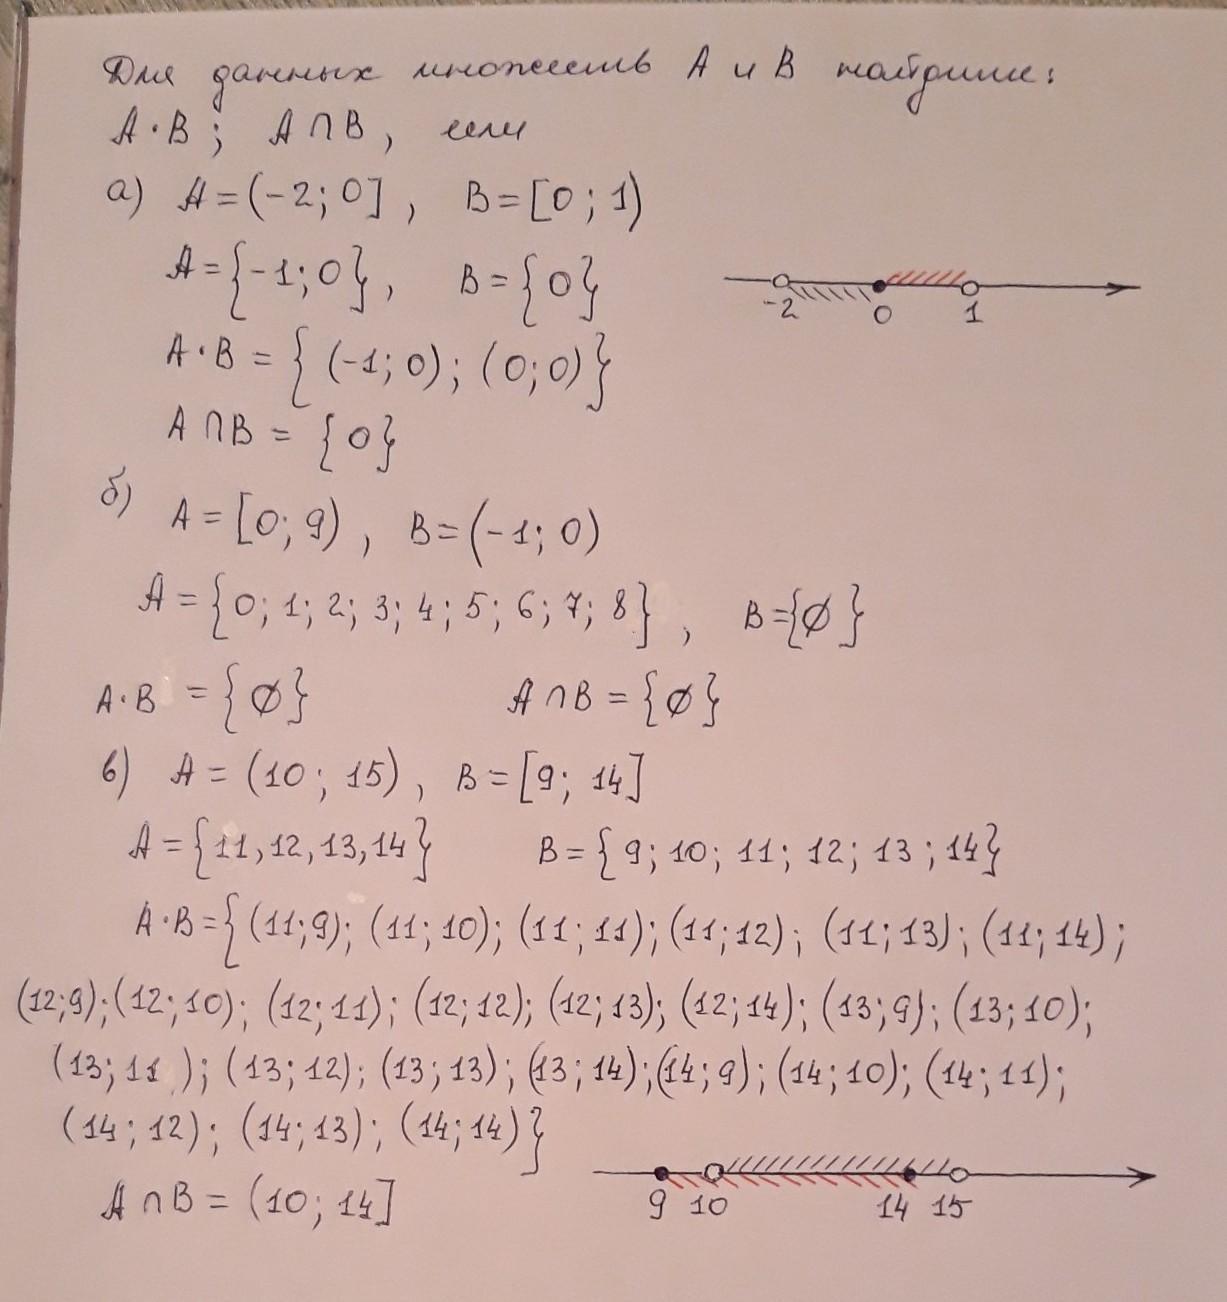 Для данных множеств A и B найдите:
A·B; A∩B, если
а) A=(-2; 0], B=[0; 1)
A={-1; 0}, B={0}
-2 0 1
A·B = {(-1; 0); (0; 0)}
A∩B = {0}
б) A=[0; 9), B=(-1; 0)
A={0; 1; 2; 3; 4; 5; 6; 7; 8}, B={∅}
A·B = {∅} A∩B = {∅}
в) A = (10; 15), B=[9; 14]
A={11, 12, 13, 14} B={9; 10; 11; 12; 13; 14}
A·B={(11; 9); (11; 10); (11; 11); (11; 12); (11; 13); (11; 14);
(12; 9); (12; 10); (12; 11); (12; 12); (12; 13); (12; 14); (13; 9); (13; 10);
(13; 11); (13; 12); (13; 13); (13; 14); (14; 9); (14; 10); (14; 11);
(14; 12); (14; 13); (14; 14)}
A∩B = (10; 14]
9 10 14 15